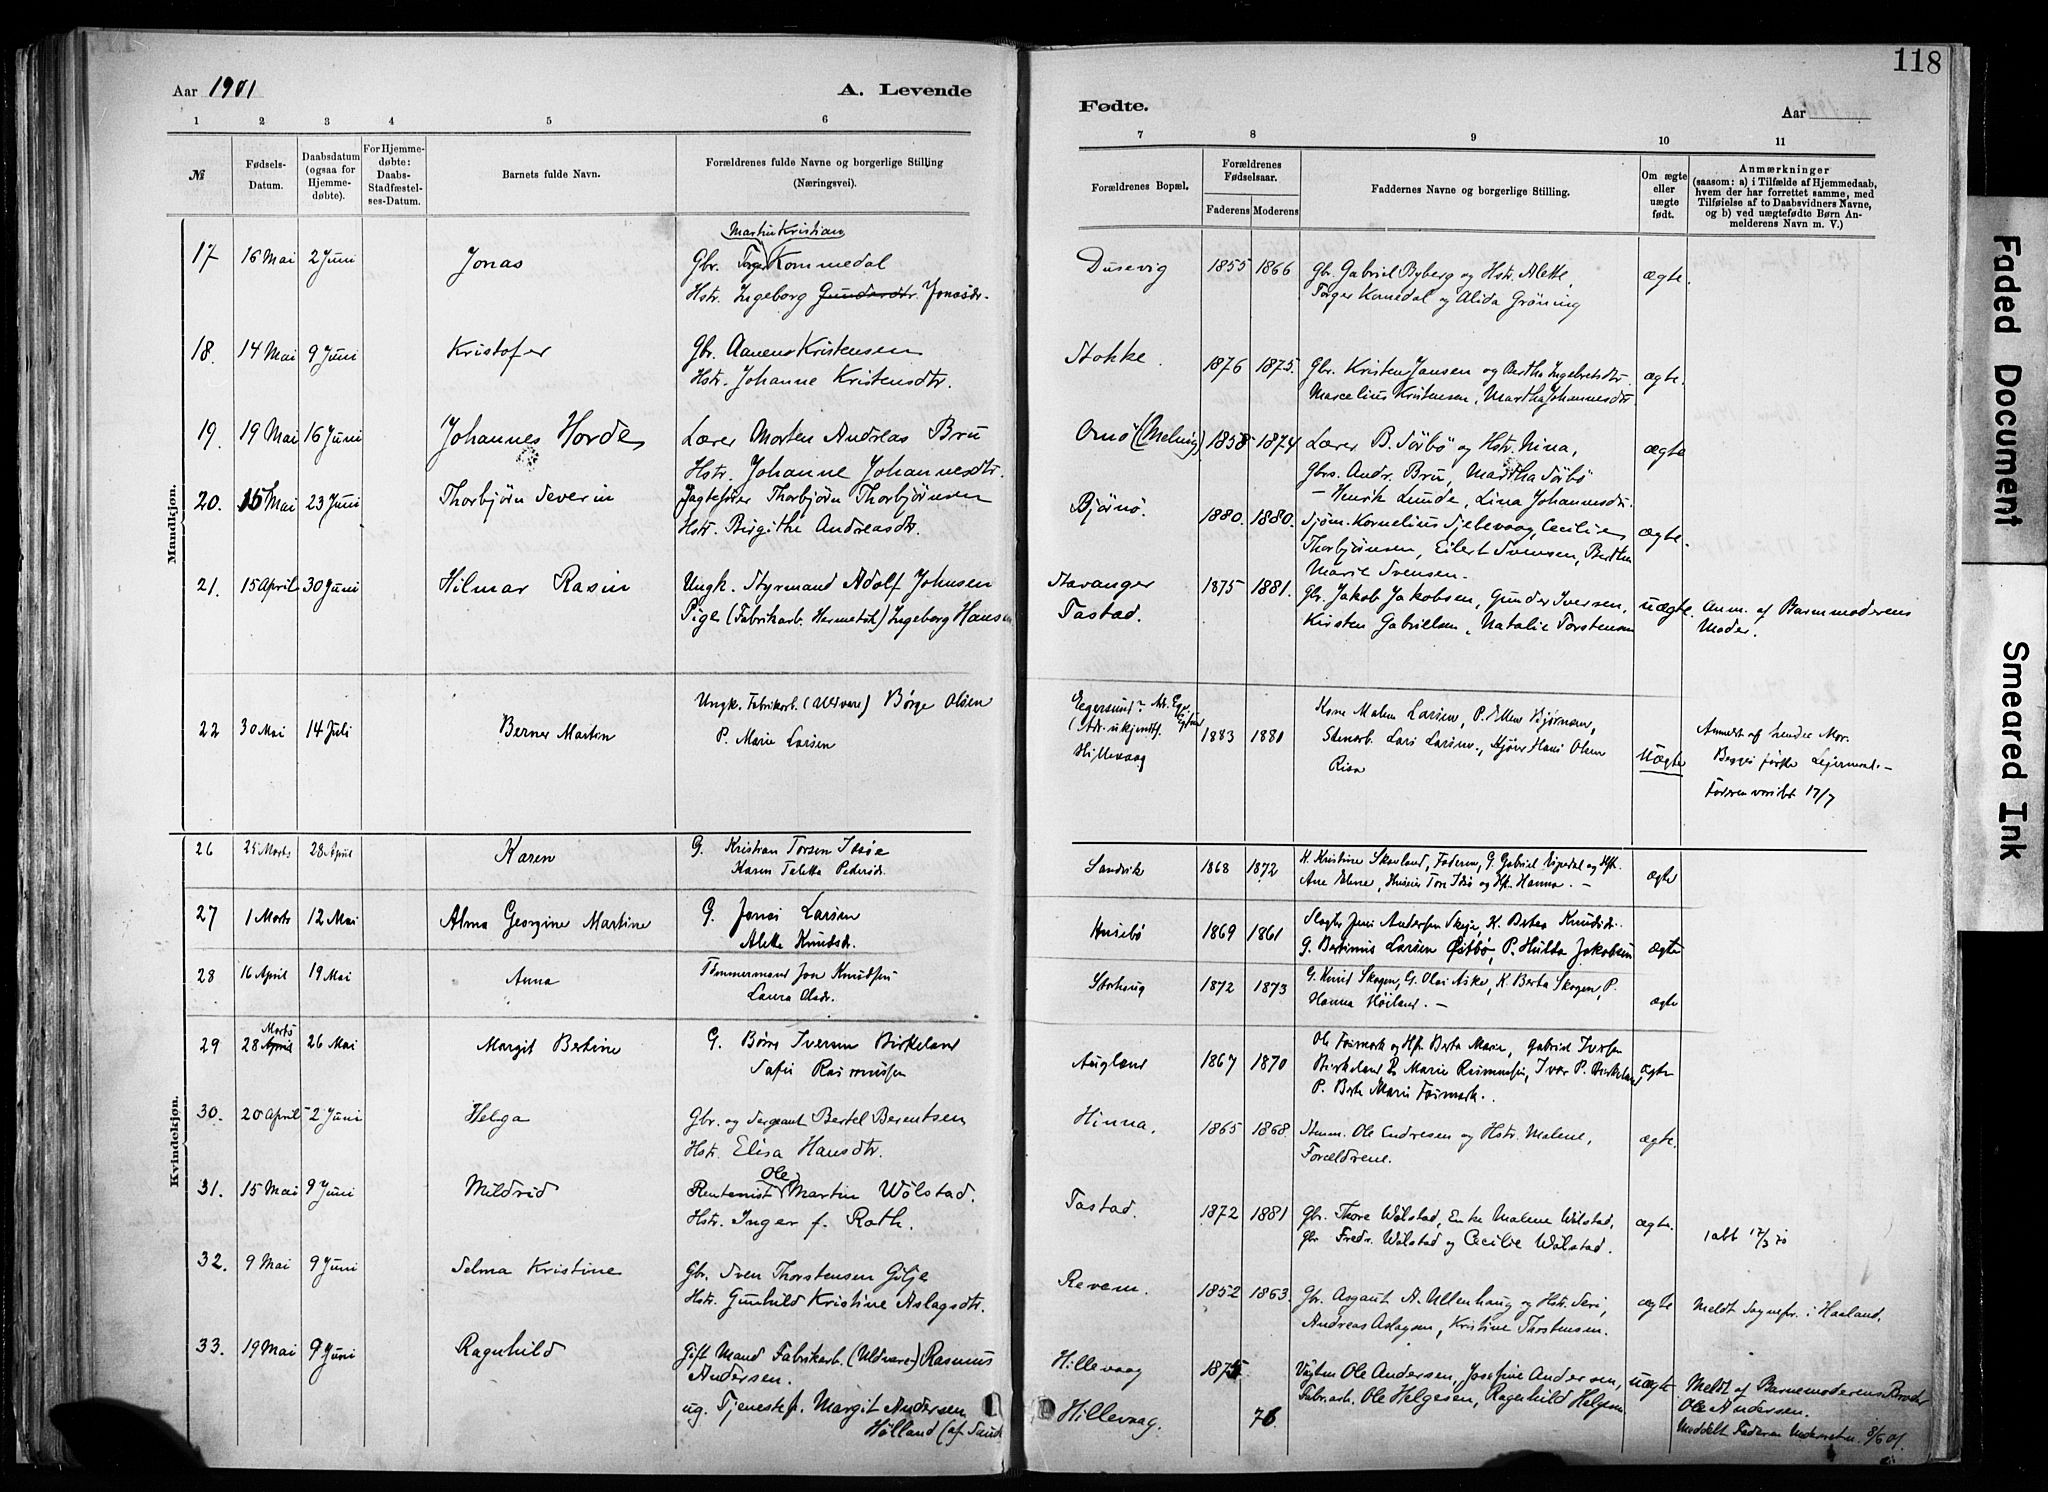 118
Aar 1901
A. Levende
Fødte.
Aar
1 2 3 4 5 6 7 8 9 10 11
№
Fødsels-Datum.
Daabsdatum (ogsaa for Hjemmedøbte).
For Hjemmedøbte: Daabs-Stadfæstelses-Datum.
Barnets fulde Navn.
Forældrenes fulde Navne og borgerlige Stilling (Næringsvei).
Forældrenes Bopæl.
Forældrenes Fødselsaar.
Faderens Moderens
Faddernes Navne og borgerlige Stilling.
Om ægte eller uægte født.
Anmærkninger
(saasom: a) i Tilfælde af Hjemmedaab, hvem der har forrettet samme, med Tilføielse af to Daabsvidners Navne, og b) ved uægtefødte Børn Anmelderens Navn m. V.)
Mandkjøn.
Martin Kristian
17 16 Mai 2 Juni Jonas Gbr. Torger Kommedal Dusevig 1855 1866 Gbr. Gabriel Byberg og Hstr. Alette, ægte.
Hstr. Ingeborg Gundersdtr. Jonasdr. Torger Komedal og Alida Grøning
18. 14 Mai 9 Juni Kristofer Gbr. Aanen Kristensen Stokke. 1876 1875. Gbr. Kristen Jansen og Bertha Ingebretsdtr. ægte.
Hstr. Johanne Kristensdtr. Marcelius Kristensen, Martha Johannesdtr
19. 19 Mai 16 Juni Johannes Horde Lærer Morten Andreas Bru Omø (Meling) 1858 1874 Lærer B. Sørbø og Hstr. Nina, ægte
Hstr. Johanne Johannesdtr. Gbrs. Andr. Bru, Martha Sørbø
– Henrik Lunde, Lina Johannesdtr.
20. 15 Mai 23 Juni Thorbjørn Severin Jagtefører Thorbjørn Thorbjørnsen Bjørnø. 1880. 1880. Sjøm. Kornelius Sjelevaag, Cecilie ægte.
Hstr. Birgithe Andreasdtr. Thorbjørnsen, Eilert Svensen, Berthe
Marie Svensen.
21. 15 April 30 Juni Hilmar Rasin Ungk. Styrmand Adolf Johnsen Stavanger 1875 1881. Gbr. Jakob Jakobsen, Gunder Iversen, uægte. Anm. af Barnmoderens
Pige (Fabrikarb. Hermetik) Ingeborg Hansen Tastad. Kirsten Gabrielsen, Natalie Torstensen Moder.
22 30 Mai 14 Juli Berner Martin Ungk. Fabrikarb. (Uldvare) Børge Olsen Egersund?
P. Marie Larsen (Adr. ukjendt). Hillevaag 1883 1881 Kone Malene Larsen, P. Ellen Bjørnsen, Uægte Anmeldt af hendes Mor.
Stenarb. Lars Larsen, Hans Olsen Begges første Leiermaal. –
Risa Faderen varslet 17/7
Kvindekjøn.
26 25 Marts 28 April Karen G. Kristian Torsen Isøe Sandvik 1868 1872 K. Kristine Skavland, Faderen, G. Gabriel Vigedal og Hst. ægte
Karen Teletta Pedersd. Ane Elene, Huseier Tore Isø og Hst. Hanna. –
27 1 Marts 12 Mai Alma Georgine Martine G. Jonas Larsen Husebø 1869 1861 Slagter Jens Andersen Skeje, K. Berta Knudsd. ægte
Alette Knudsd. G. Bertinus Larsen Østbø, P. Hulda Jakobsen
28 16 April 19 Mai Anna Tømmermand Jon Knudsen Storhaug 1872 1873 G. Knud Skogen, G. Olai Aske, K. Berta Skogen, P. ægte
Laura Olsd. Hanna Høiland. –
Marts
29 28 April 26 Mai Margit Bertine G. Børre Iversen Birkeland Augland 1867 1870 Ole Foismark og Hst. Berta Marie, Gabriel Iversen ægte
Sofie Rasmussen Birkeland, P. Marie Rasmussen, Iver P. Birkeland,
P. Berta Marie Foismark.
30. 20 April 2 Juni Helga Gbr. og Sergeant Bertel Berentsen Hinna. 1865 1868. Stenm. Ole Endresen og Hstr. Malene, ægte.
Hstr. Elisa Hansdtr. Forældrene.
Ole
31. 15 Mai 9 Juni Mildrid Rentenist Martin Wølstad. Tastad. 1872 1881 Gbr. Thore Wølstad, Enke Malene Wølstad, ægte.
Hstr. Inger f. Roth. Gbr. Fredr. Wølstad og Cecilie Wølstad. 1 att 17/3 70
32. 9 Mai 9 Juni Selma Kristine Gbr. Sven Thorstensen Gilje Revem. 1852 1863. Gbr. Asgaut A. Ullenhaug og Hstr. Seri, ægte Meldt Sognepr. i Haaland.
Hstr. Gunhild Kristine Aslagsdtr. Andreas Aslagsen, Kristine Thorstensen.
33. 19 Mai 9 Juni Ragnhild Gift Mand Fabrikarb. (Uldvare) Rasmus Hillevaag 1875 Vægtm Ole Andersen, Josefine Andersen, uægte Meldt af Barnemoderens Broder
Andersen. Fabr.arb. Ole Helgesen, Ragnhild Helgesen Ole Andersen.
ug. Tjenestep. Margit Andersen Hillevaag. 76. Meddelt Faderen Underretn. 8/6 01.
Hølland (af Sand
Faded Document
Smeared Ink